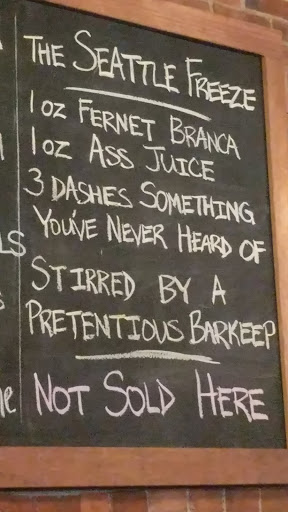 THE SEATTLE FREEZE
1 OZ FERNET BRANCA
1 OZ ASS JUICE
3 DASHES SOMETHING
YOU'VE NEVER HEARD OF
STIRRED BY A
PRETENTIOUS BARKEEP
NOT SOLD HERE